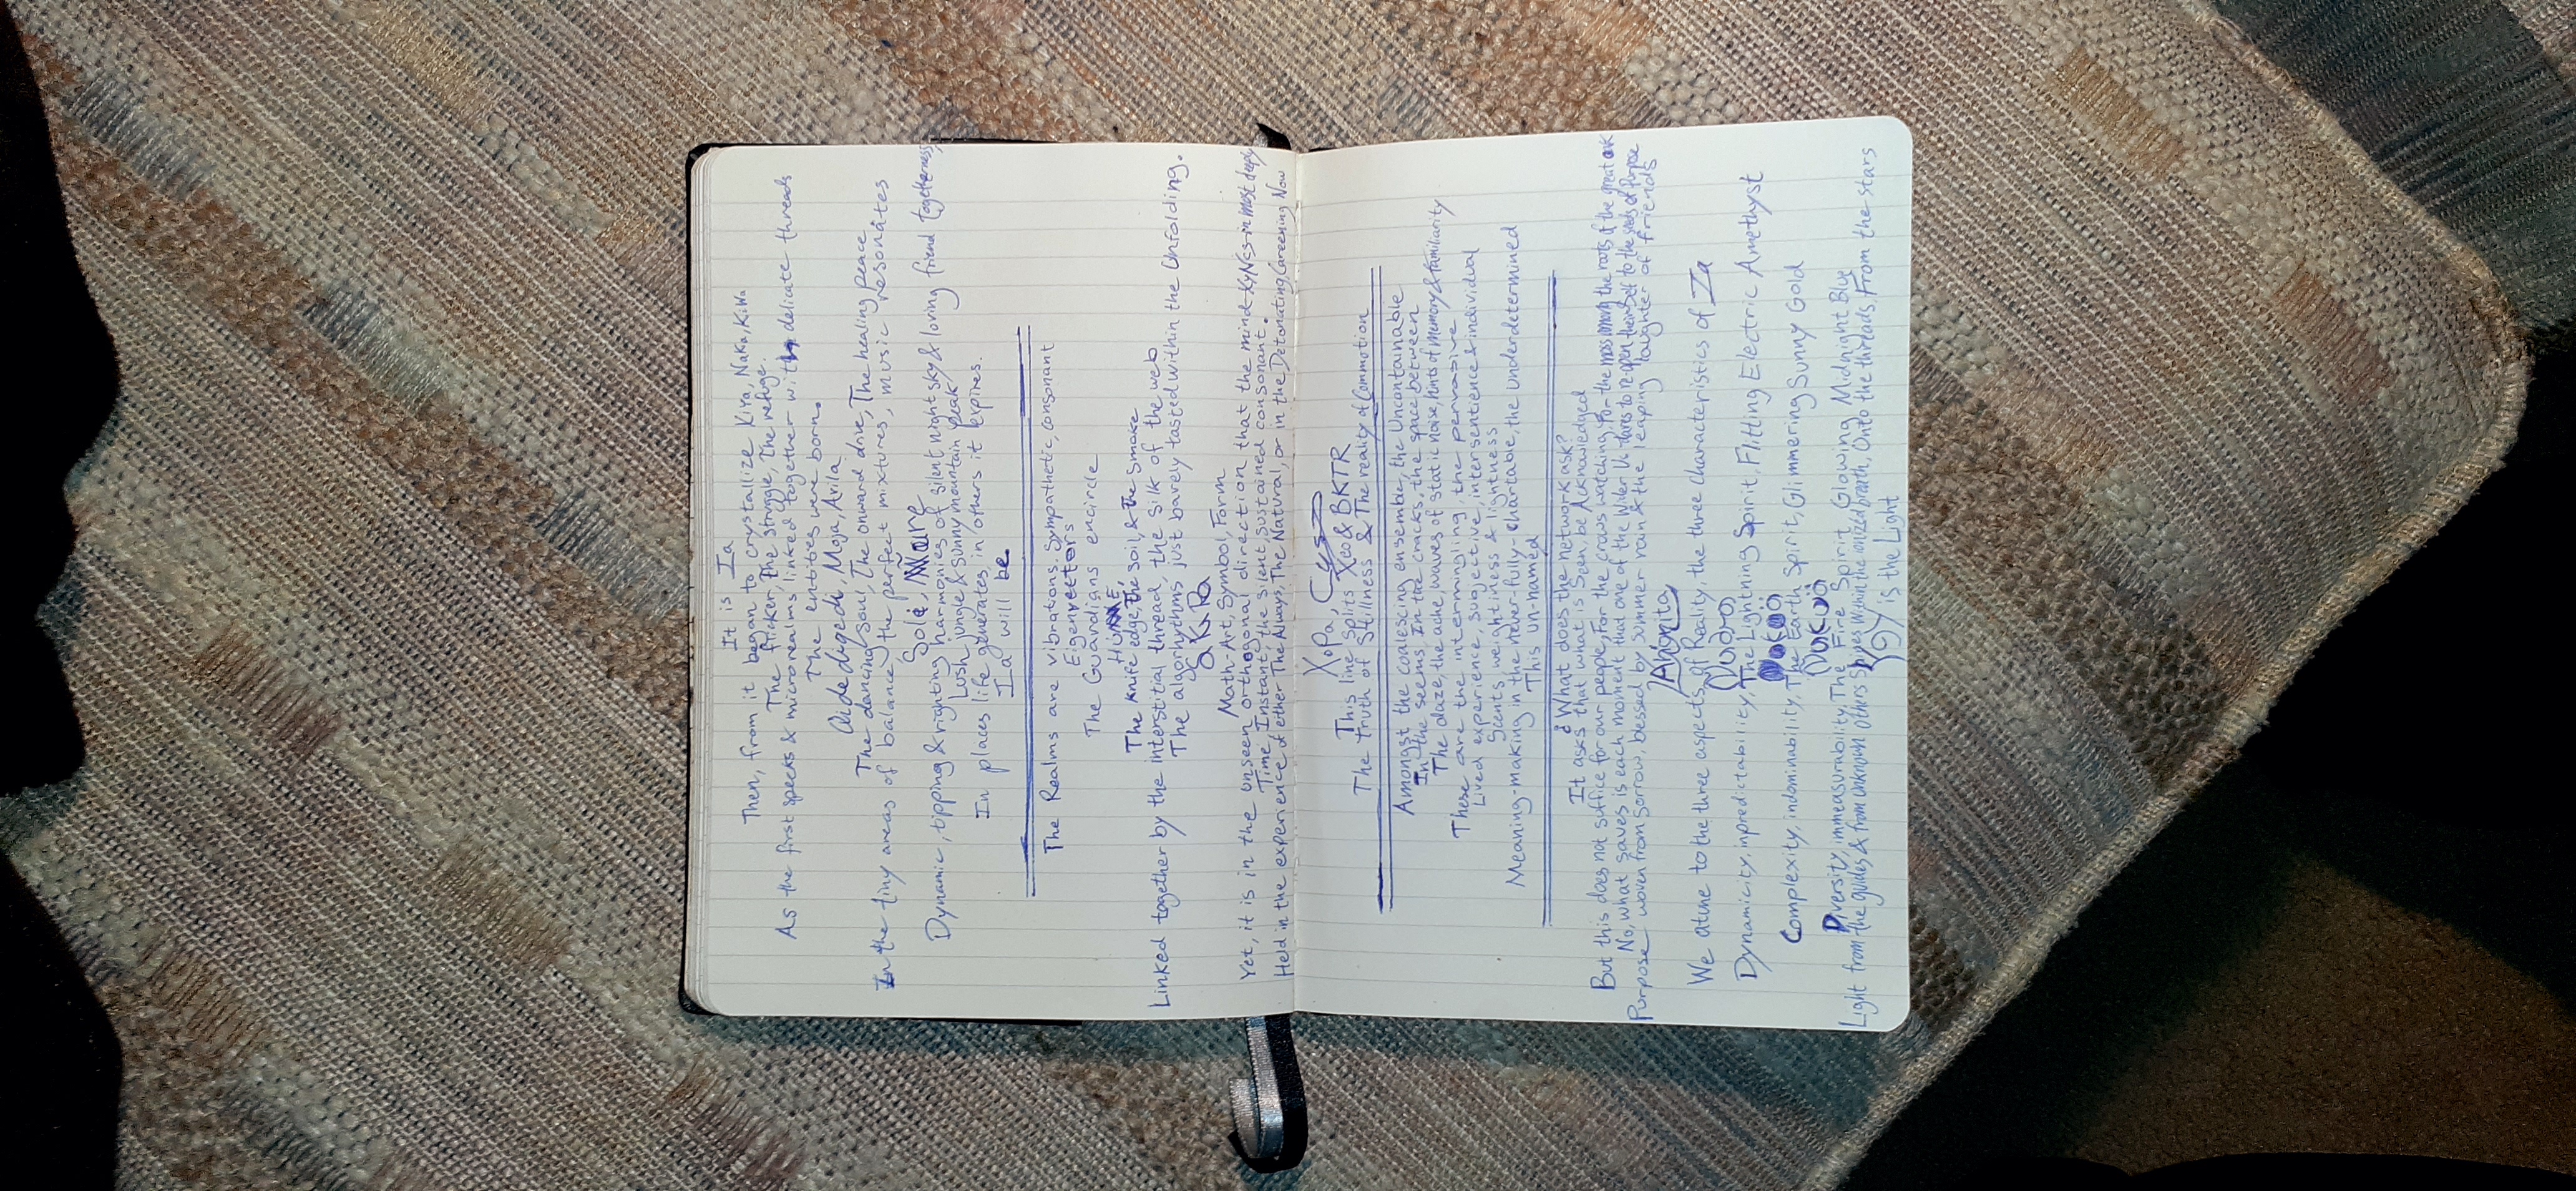 It is Ia
Then, from it began to crystallize Kiya, Naka, KiWa
The flicker, The struggle, The refuge.
As the first specks & microrealms linked together with delicate threads
The entities were born.
Qidedigedi, Moja, Arila
The dancing soul, The onward drive, The healing peace
In the tiny areas of balance, the perfect mixtures, music resonates
Sole,
Dynamic, tipping & righting harmonies of silent night sky & loving friend togetherness,
Lush jungle & sunny mountain peak
In places life generates, in others it expires.
Ia will be
The Realms are vibrations. Sympathetic, consonant
Eigenvectors
The Guardians encircle
The Knife edge, The soil, & The smoke
Linked together by the interstitial thread, the silk of the web
The algorhythms just barely tasted within the Unfolding.
Math-Art, Symbol, Form
Yet, it is in the unseen orthogonal direction that the mind-KyNss-in most deeply
Time, Instant, the silent, sustained consonant.
Held in the experience of either The Always, The Natural, or in the Detonating Careening Now
XoPa,
This line splits Xeo & BKTR
The Truth of Stillness & The reality of Commotion
Amongst the coalescing ensemble, the Uncontainable
In the seems, In the cracks, the space between
The daze, the ache, waves of static noise, hints of Memory & familiarity
These are the intermingling, the pervasive
Lived experience, subjective, intersentience & individual
Scents, weightiness & lightness
Meaning-making in the never-fully-chartable, the underdetermined
This un-named
¿What does the network ask?
It asks that what is Seen, be Acknowledged
But this does not suffice for our people, For the crows watching, For the moss among the roots of the great oak
No, what saves is each moment that one of the Wider Us dares to re-open theirself to the seeds of Purpose
Purpose woven from sorrow, blessed by summer rain & the leaping laughter of friends
We atune to the three aspects of Reality, the three characteristics of Ia
Dynamicity, inpredictability, The Lightning Spirit, Flitting Electric Amethyst
Complexity, indominability, The Earth Spirit, Glimmering Sunny Gold
Diversity, immeasurability, The Fire Spirit, Glowing Midnight Blue
Light from the guides & from unknown others Shines Within the ionized breath, Onto the threads, From the stars
is the Light